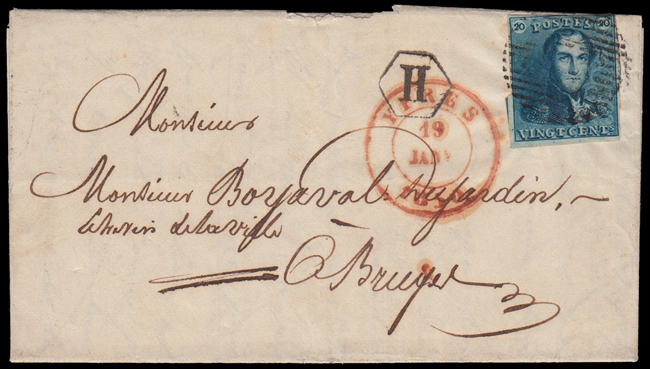 20 POSTES 20
VINGT CENTS
H
YPRES
19
JANV
Monsieur
Monsieur Boyaval Dujardin,
de la ville
à Bruges